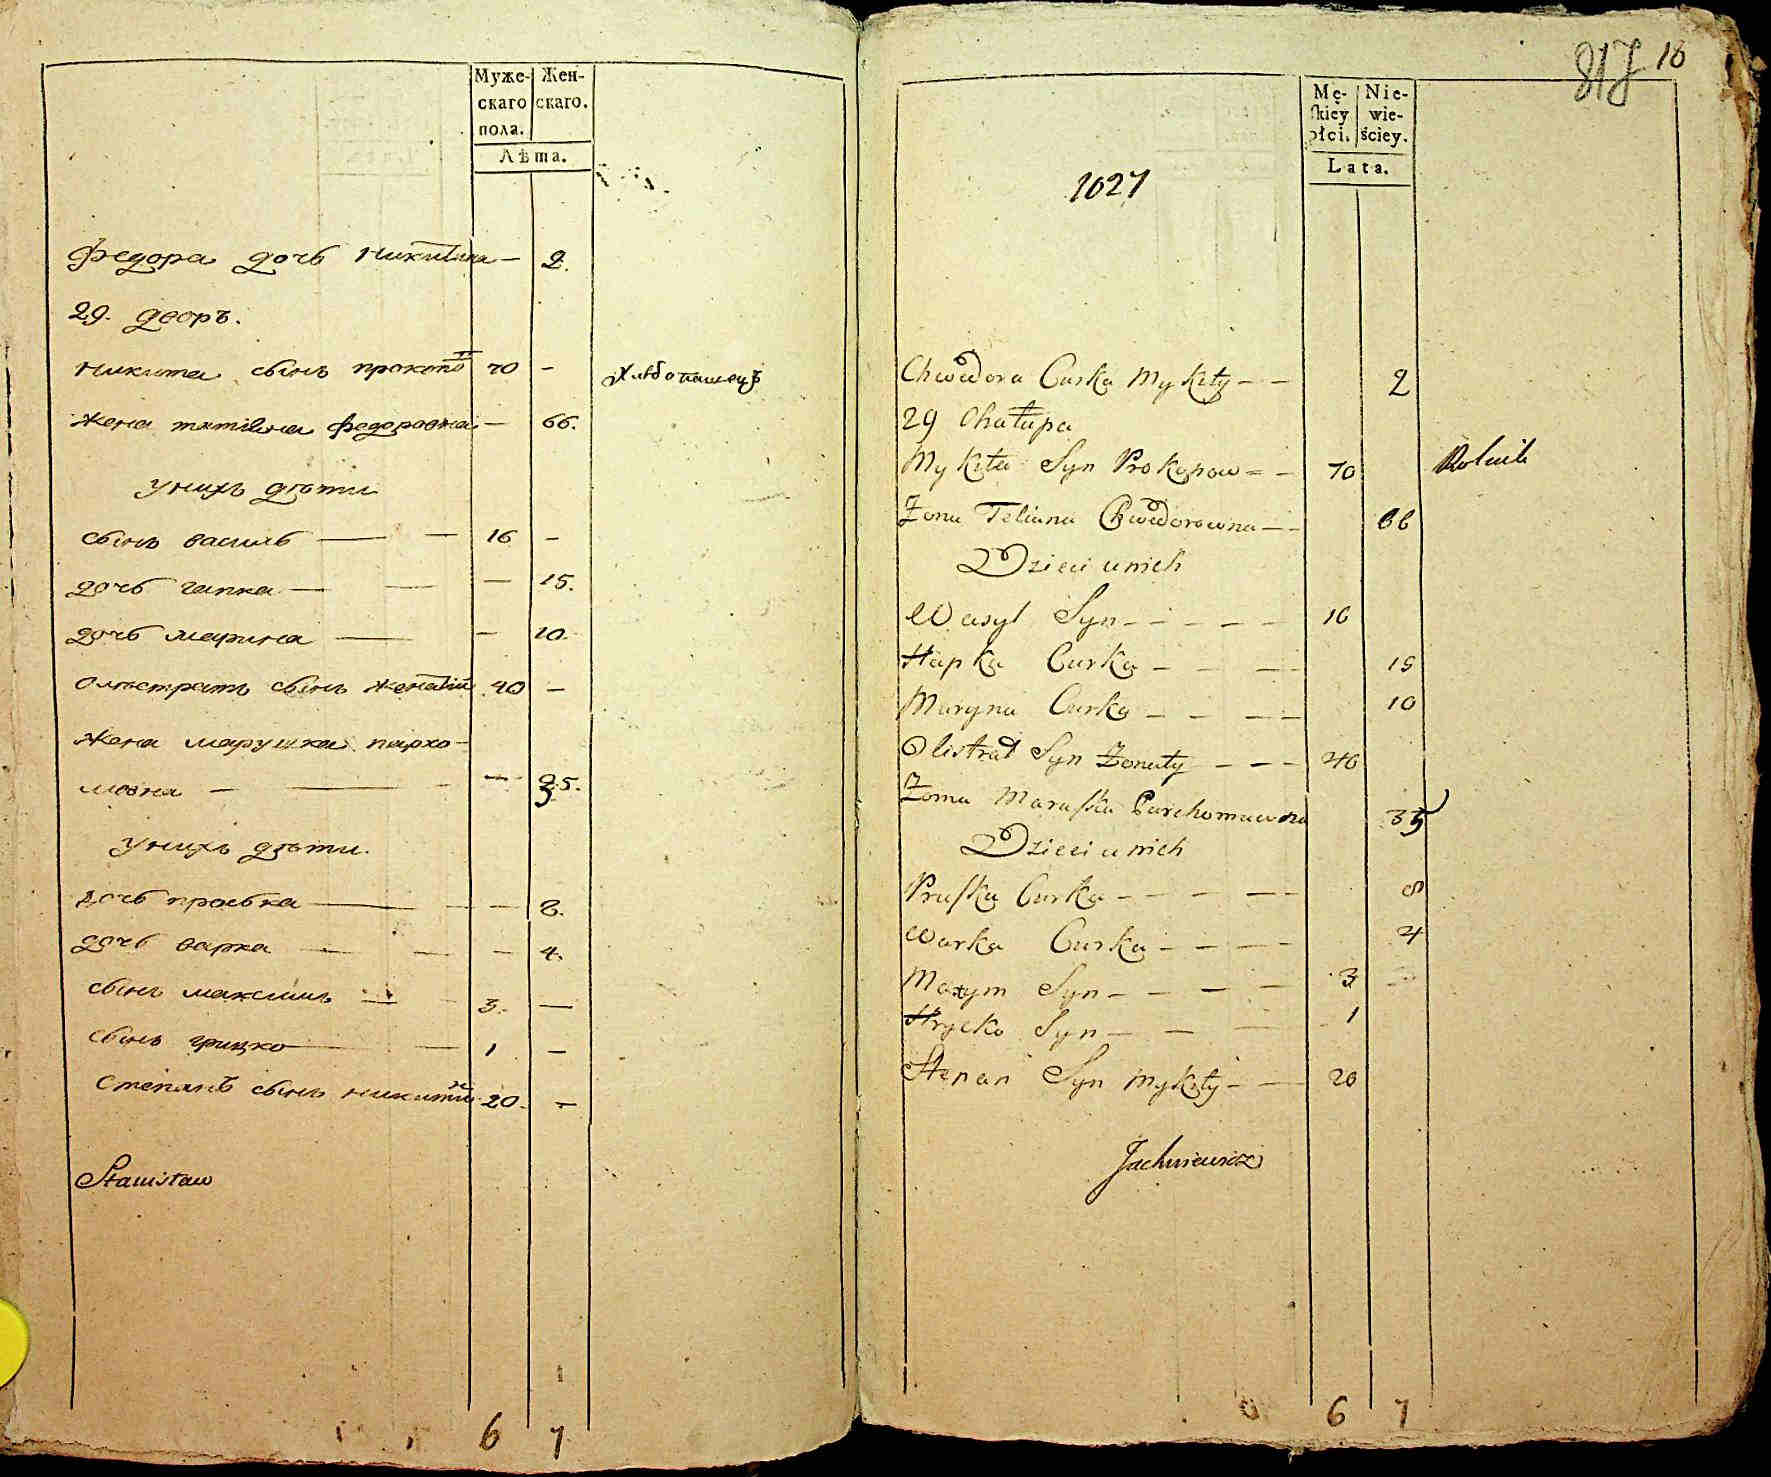 Муже-
скаго
пола.
Жен-
скаго.
Лѣта.
Федора дочь Никитина — 2.
29. дворъ.
Никита сынъ прокопо 70 — Хлѣбопашецъ
жена татіяна федоровна — 66.
унихъ дѣти
сынъ василь — — 16 —
дочь гапка — — — 15.
дочь марина — — 10.
олыстратъ сынъ женатій 40 —
жена марушка пархо-
мовна — — — 35.
унихъ дѣти.
дочь проська — — — 8.
дочь варка — — — 4.
сынъ максимъ — 3. —
сынъ грицко — — 1 —
Степанъ сынъ никитинъ 20. —
Stanisław
6 7
817 18
Mę-
skiey
płci.
Nie-
wie-
ściey.
Lata.
1627
Chwedora Curka Mykity — — 2
29 Chałupa
Mykita Syn Prokopow = — 70 Rolnik
Żona Teliana Chwedorowna — — 66
Dzieci u nich
Wasyl Syn — — — — — 16
Hapka Curka — — — 15
Maryna Curka — — — — 10
Olistrat Syn Żonaty — — — 40
Żona Maruszka Parchomowna 35
Dzieci u nich
Pruska Curka — — — — — 8
Warka Curka — — — — 4
Maxym Syn — — — — 3
Hryćko Syn — — — 1
Stepan Syn Mykity — — 20
Jachniewicz
6 7